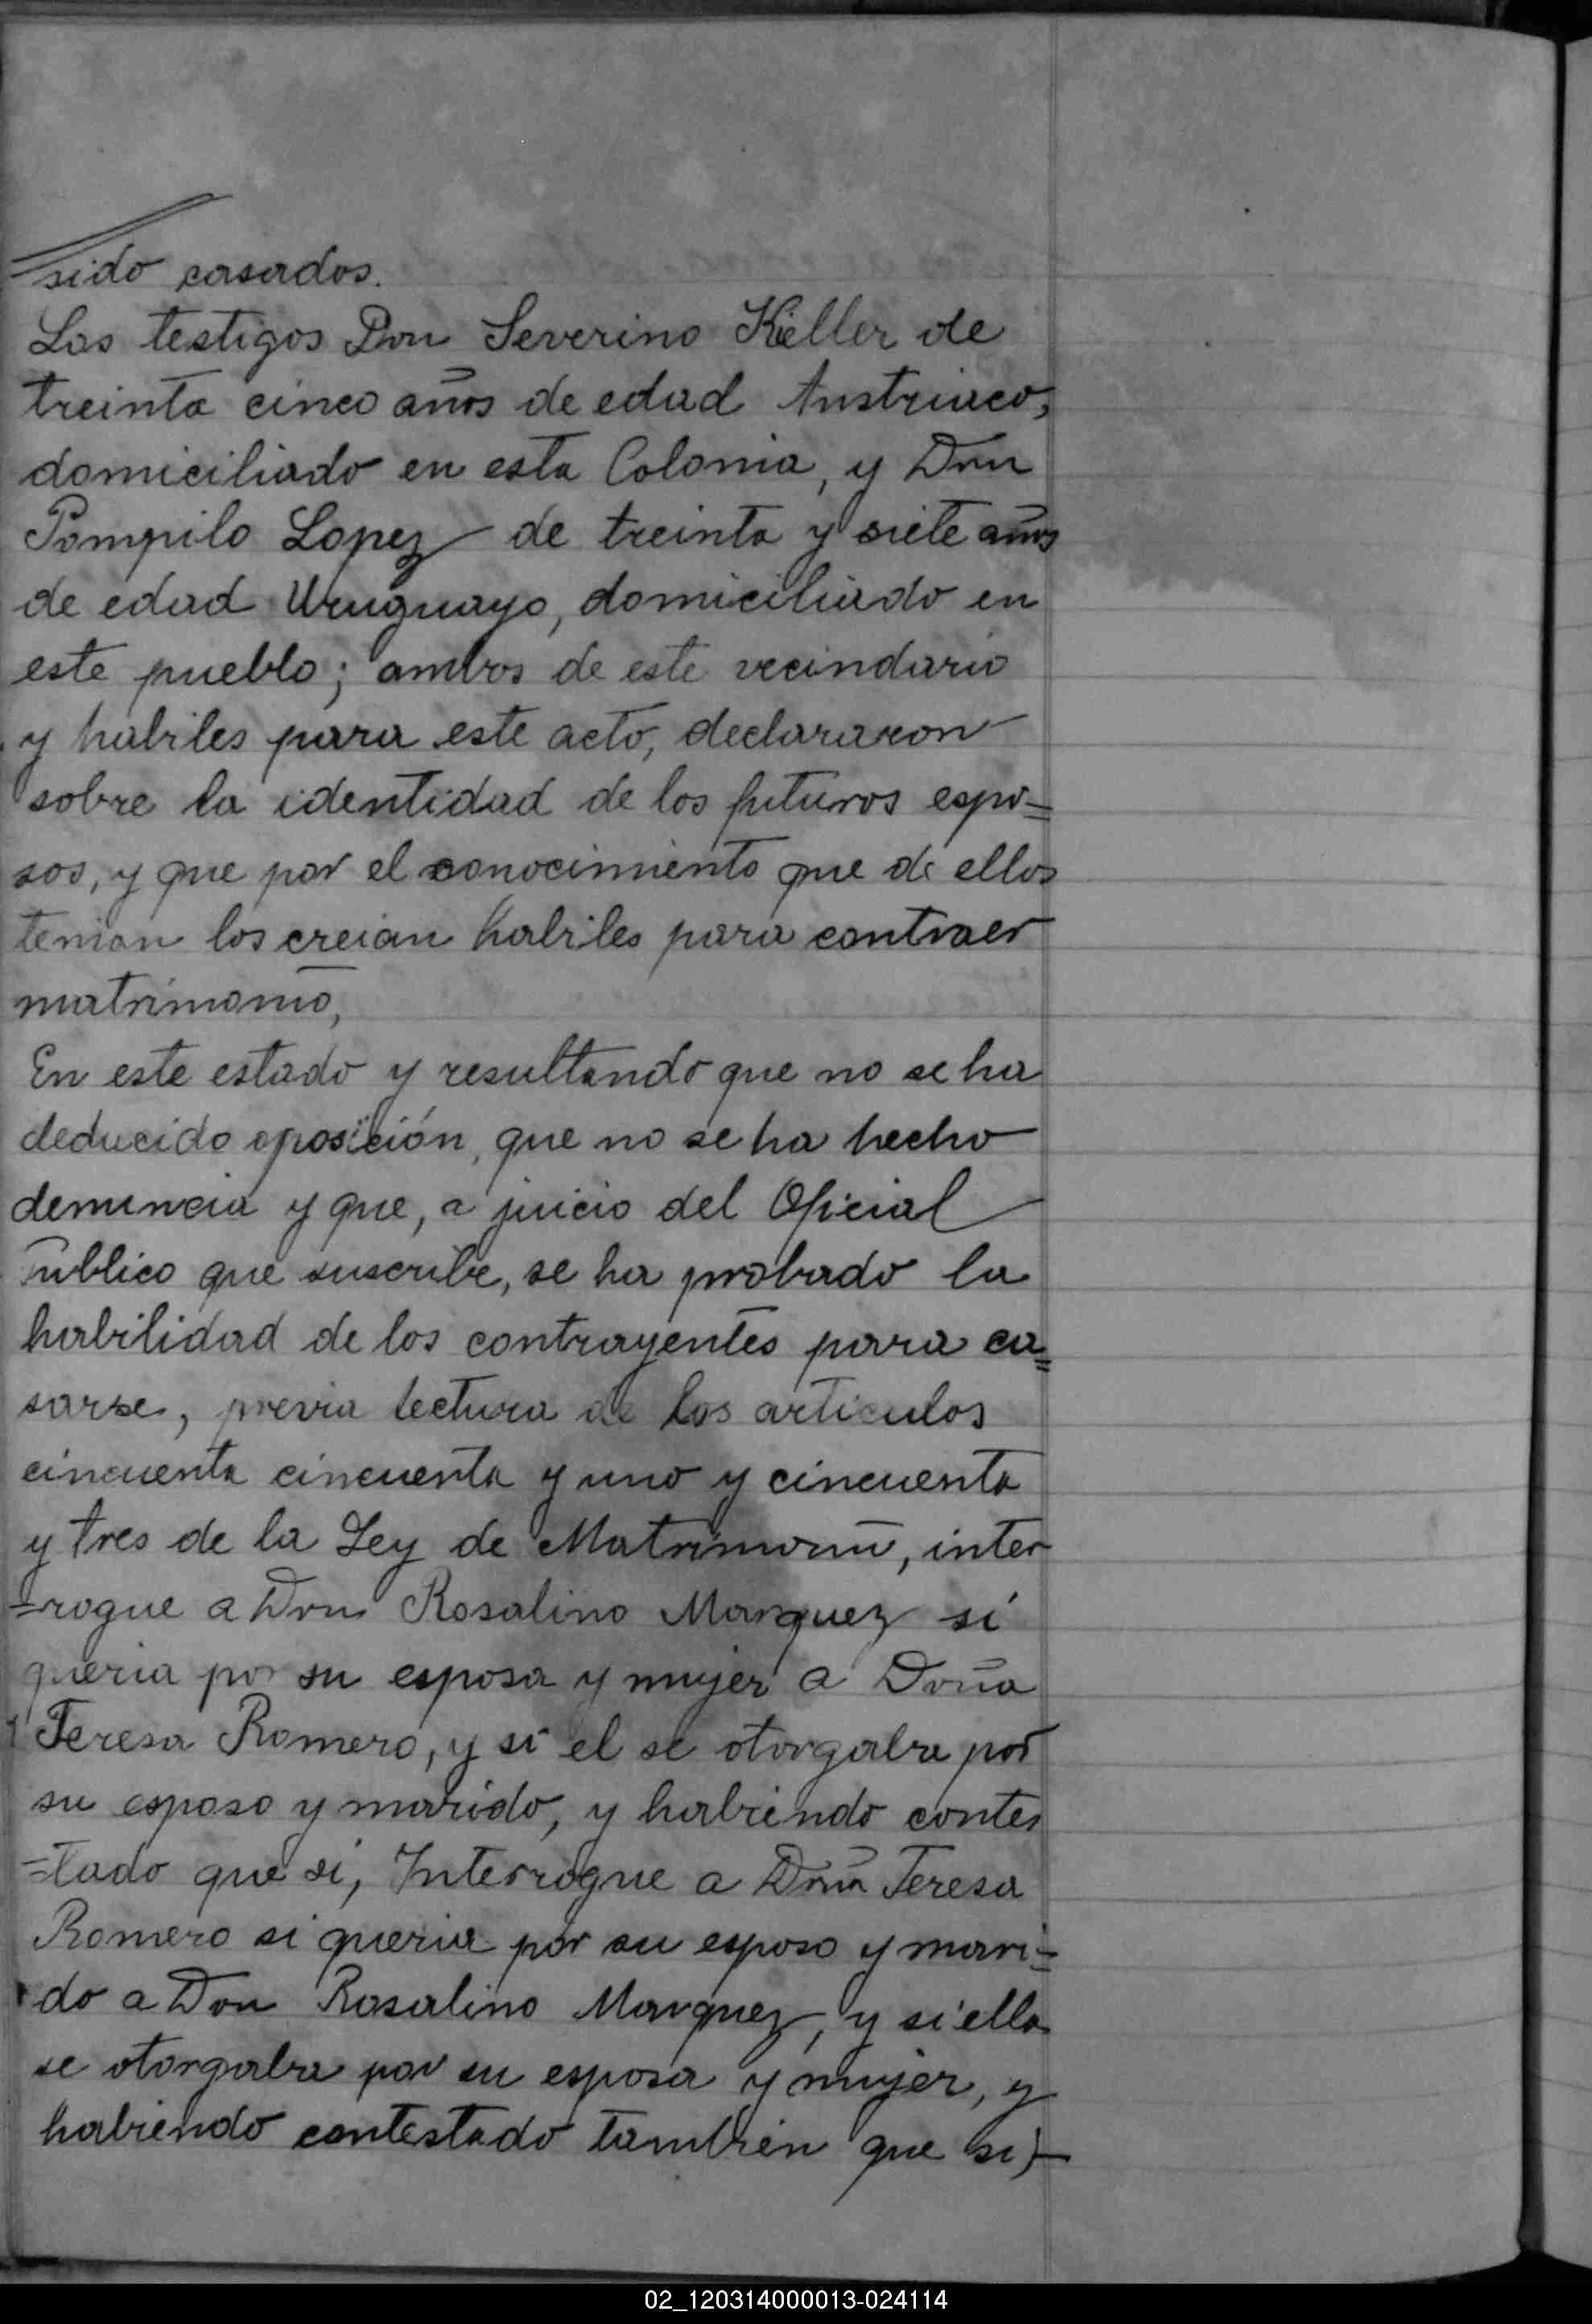 sido casados.
Los testigos Don Severino Kieller de
treinta cinco años de edad Austriaco,
domiciliado en esta Colonia, y Don
Pompilo Lopez de treinta y siete años
de edad Uruguayo, domiciliado en
este pueblo; ambos de este vecindario
y habiles para este acto, declararon
sobre la identidad de los futuros espo=
sos, y que por el conocimiento que de ellos
tenian los creian habiles para contraer
matrimonio,
En este estado y resultando que no se ha
deducido oposición, que no se ha hecho
denuncia y que, a juicio del Oficial
Publico que suscribe, se ha probado la
habilidad de los contrayentes para ca=
sarse, previa lectura de los articulos
cincuenta cincuenta y uno y cincuenta
y tres de la Ley de Matrimonio, inter
=rogue a Don Rosalino Marquez si
queria por su esposa y mujer a Doña
Teresa Romero, y si el se otorgaba por
su esposo y marido, y habiendo contes
=tado que si, Interrogue a Doña Teresa
Romero si queria por su esposo y mari=
do a Don Rosalino Marquez, y si ella
se otorgaba por su esposa y mujer, y
habiendo contestado tambien que si,
02_120314000013-024114